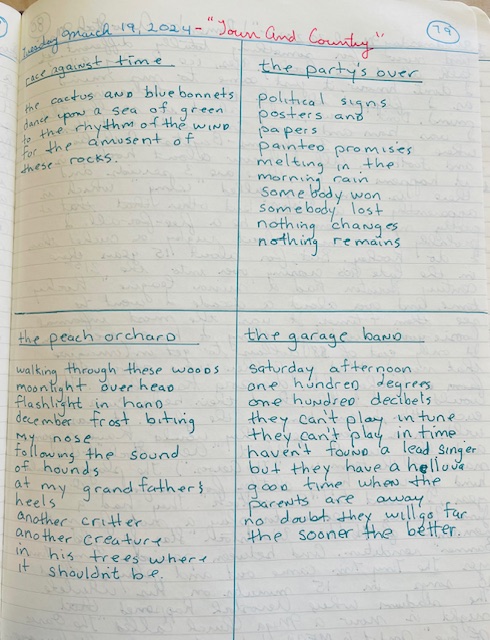 Tuesday March 19, 2024 - "Town And Country"
79
race against time
the cactus and bluebonnets
dance upon a sea of green
to the rhythm of the wind
for the amusent of
these rocks.
the party's over
political signs
posters and
papers
painted promises
melting in the
morning rain
somebody won
somebody lost
nothing changes
nothing remains
the peach orchard
walking through these woods
moonlight over head
flashlight in hand
december frost biting
my nose
following the sound
of hounds
at my grandfather's
heels
another critter
another creature
in his trees where
it shouldn't be.
the garage band
saturday afternoon
one hundred degrees
one hundred decibels
they can't play in tune
they can't play in time
haven't found a lead singer
but they have a helluva
good time when the
parents are away
no doubt they will go far
the sooner the better.